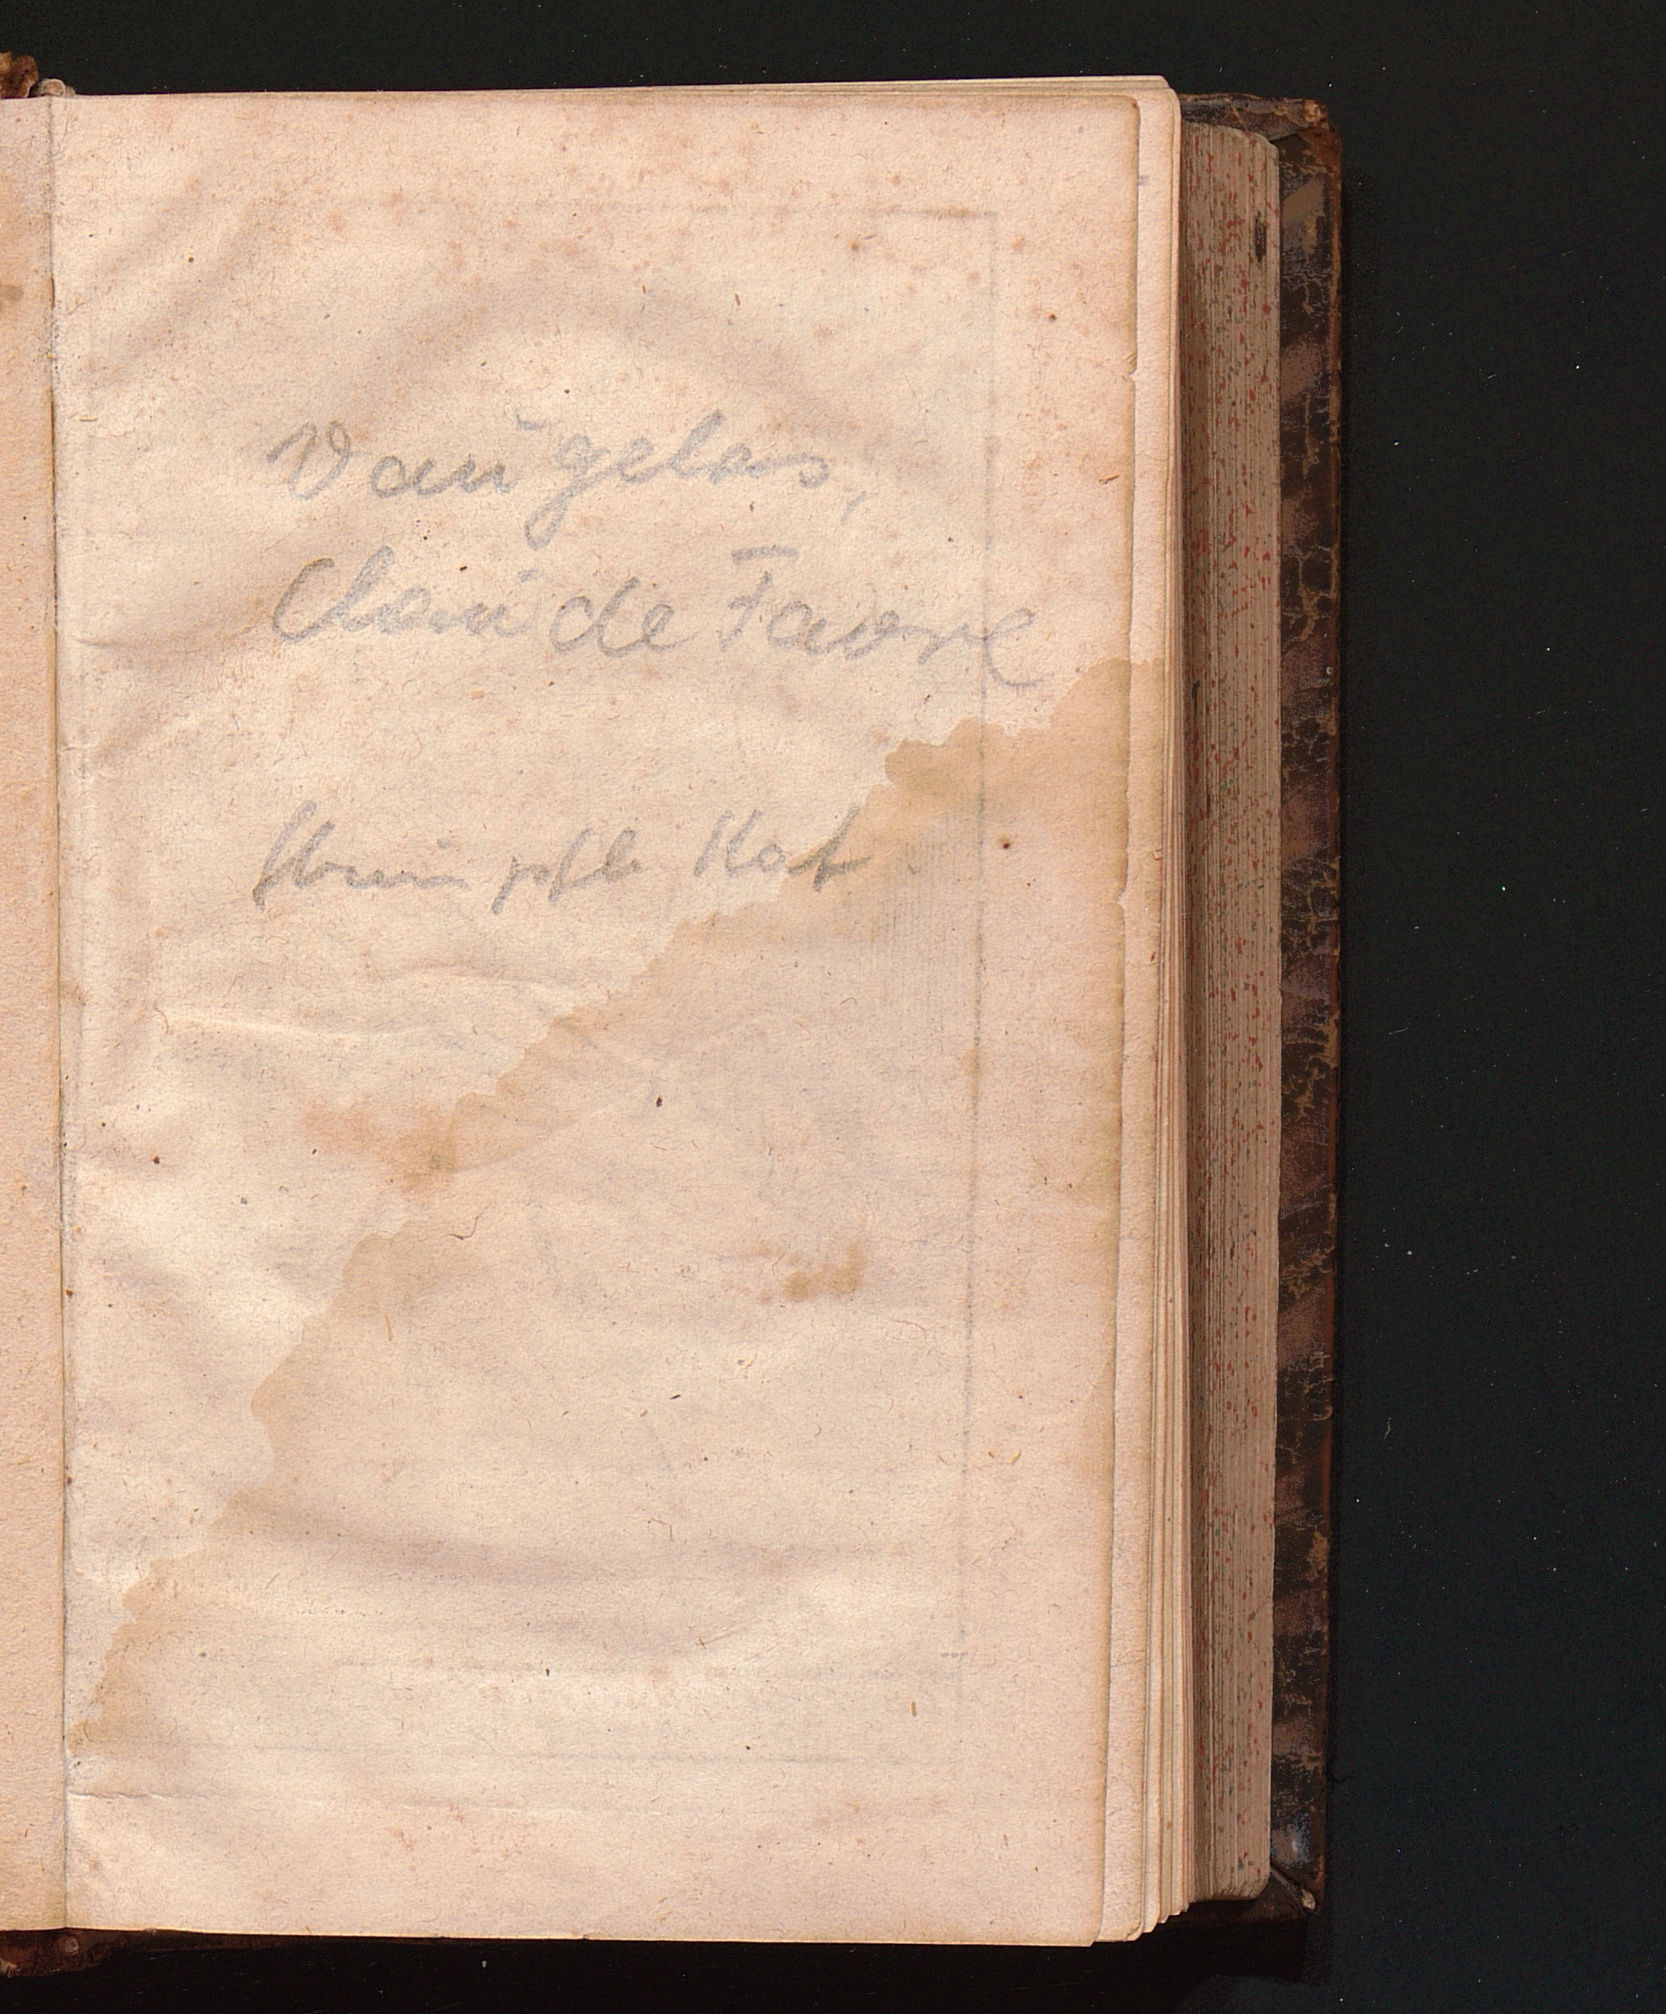 Vaugelas,
Claude Favre
Kat.